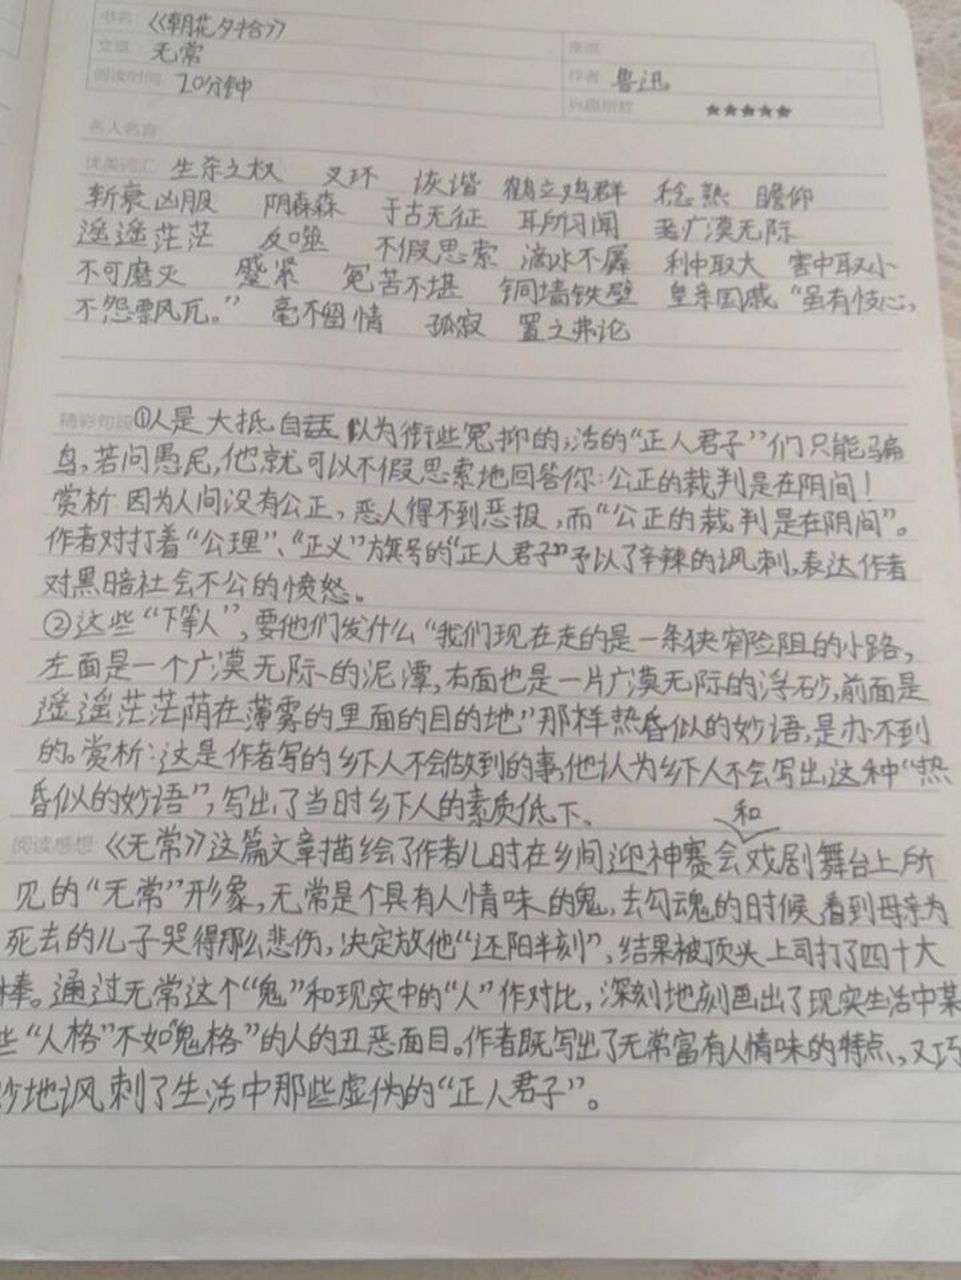 书名 《朝花夕拾》
文章 无常
来源
阅读时间 20分钟
作者 鲁迅
内容指数 ★★★★★
名人名言
优美词汇 生杀之权 叉环 诙谐 鹤立鸡群 稔熟 瞻仰
斩衰凶服 阴森森 于古无征 耳所习闻 广漠无际
遥遥茫茫 反噬 不假思索 滴水不羼 利中取大 害中取小
不可磨灭 蹙紧 冤苦不堪 铜墙铁壁 皇亲国戚 “虽有忮心,
不怨飘风瓦。” 毫不留情 孤寂 置之弗论
精彩句段 ①人是大抵自 以为衔些冤抑的;活的“正人君子”们只能骗
鸟,若问愚民,他就可以不假思索地回答你:公正的裁判是在阴间!
赏析:因为人间没有公正,恶人得不到恶报,而“公正的裁判是在阴间”。
作者对打着“公理”、“正义”旗号的“正人君子”予以了辛辣的讽刺,表达作者
对黑暗社会不公的愤怒。
②这些“下等人”,要他们发什么“我们现在走的是一条狭窄险阻的小路,
左面是一个广漠无际的泥潭,右面也是一片广漠无际的浮砂,前面是
遥遥茫茫荫在薄雾的里面的目的地”那样热昏似的妙语,是办不到
的。赏析:这是作者写的乡下人不会做到的事,他认为乡下人不会写出这种“热
昏似的妙语”,写出了当时乡下人的素质低下、
和
阅读感想 《无常》这篇文章描绘了作者儿时在乡间迎神赛会戏剧舞台上所
见的“无常”形象,无常是个具有人情味的鬼,去勾魂的时候,看到母亲为
死去的儿子哭得那么悲伤,决定放他“还阳半刻”,结果被顶头上司打了四十大
棒。通过无常这个“鬼”和现实中的“人”作对比,深刻地刻画出了现实生活中某
些“人格”不如“鬼格”的人的丑恶面目。作者既写出了无常富有人情味的特点,又巧
妙地讽刺了生活中那些虚伪的“正人君子”。